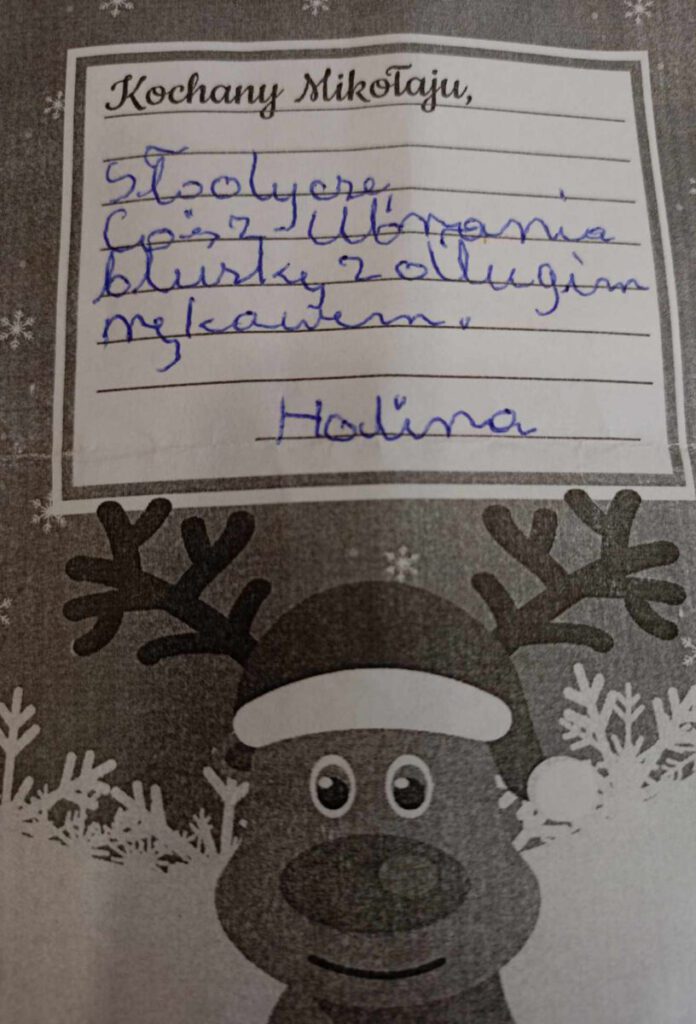 Kochany Mikołaju,
Słodycze
Coś z ubrania
bluzkę z długim
rękawem.
Halina